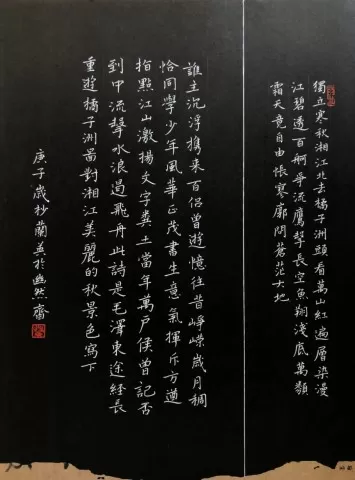 獨立寒秋湘江北去橘子洲頭看萬山紅遍層染漫
江碧透百舸爭流鷹擊長空魚翔淺底萬類
霜天競自由悵寥廓問蒼茫大地
誰主沉浮攜來百侶曾遊憶往昔崢嶸歲月稠
恰同學少年風華正茂書生意氣揮斥方遒
指點江山激揚文字糞土當年萬戶侯曾記否
到中流擊水浪遏飛舟此詩是毛澤東途經長
重遊橘子洲當對湘江美麗的秋景色寫下
庚子歲杪蘭英於幽然齋